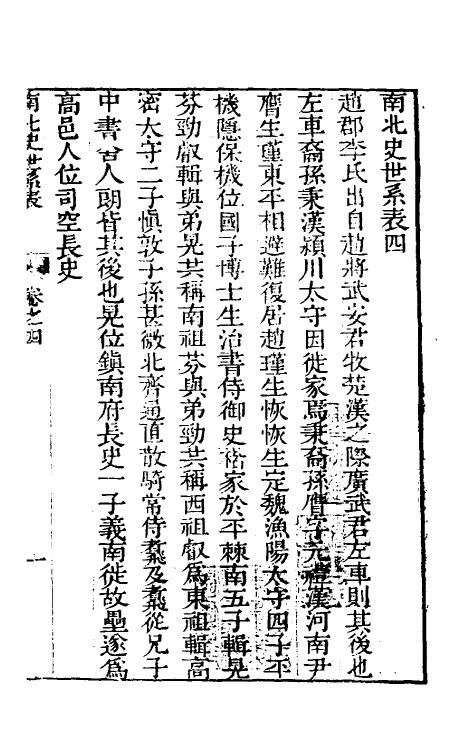 南北史世系表四
趙郡李氏出自趙將武安君牧楚漢之際廣武君左車則其後也
左車裔孫秉漢潁川太守因徙家焉秉裔孫膺字元禮漢河南尹
膺生瑾東平相避難復居趙瑾生恢恢生定魏漁陽太守四子平
機隱保機位國子博士生治書侍御史楷家於平棘南五子輯晃
芬勁叡輯與弟晃共稱南祖芬與弟勁共稱西祖叡爲東祖輯高
密太守二子慎敦子孫甚微北齊通直散騎常侍翥及翥從兄子
中書舍人朗皆其後也晃位鎮南府長史一子義南徙故壘遂爲
高邑人位司空長史
南北史世系表
卷之四
一